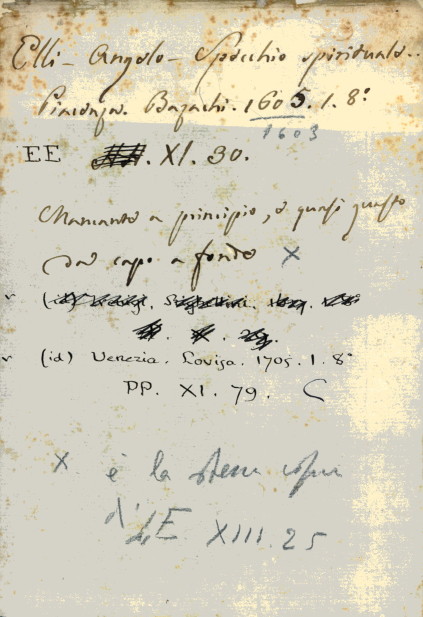 Elli - Angelo - Specchio spirituale..
Piacenza. Bazachi. 1605. 1. 8°
1603
EE . XI. 30.
Mancante a principio, e quasi guasto
da capo a fondo X
(id) Venezia. Lovisa. 1705. 1. 8°
PP. XI. 79. C
X è la stessa copia
d' EE XIII. 25